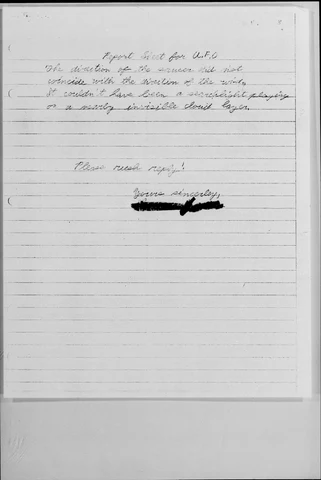 Report Sheet for U.F.O
The direction of the saucer did not
coincide with the direction of the wind.
It couldn't have been a searchlight playing
on a nearby invisible cloud layer.
Please rush reply!
Yours sincerley,